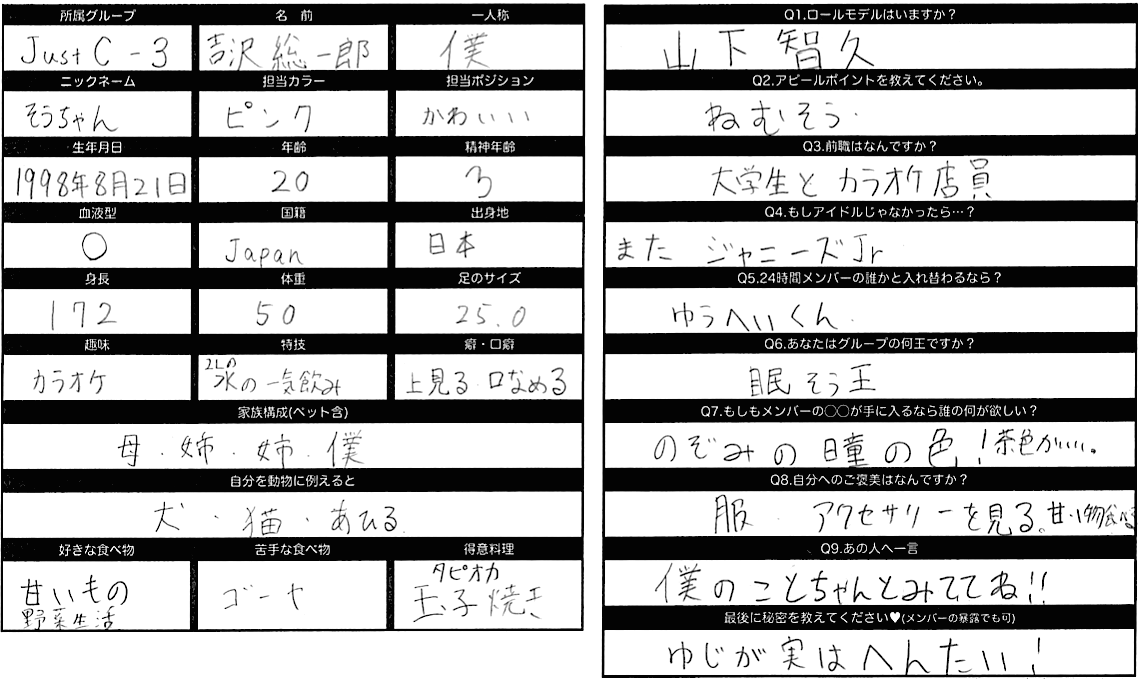 所属グループ 名前 一人称
Just C-3 吉沢総一郎 僕
ニックネーム 担当カラー 担当ポジション
そうちゃん ピンク かわいい
生年月日 年齢 精神年齢
1998年8月21日 20 3
血液型 国籍 出身地
O Japan 日本
身長 体重 足のサイズ
172 50 25.0
趣味 特技 癖・口癖
カラオケ 2Lの水の一気飲み 上見る 口なめる
家族構成(ペット含)
母・姉・姉・僕
自分を動物に例えると
犬・猫・あひる
好きな食べ物 苦手な食べ物 得意料理
甘いもの ゴーヤ タピオカ
野菜生活 玉子焼き
Q1.ロールモデルはいますか?
山下智久
Q2.アピールポイントを教えてください。
ねむそう.
Q3.前職はなんですか?
大学生と カラオケ店員
Q4.もしアイドルじゃなかったら…?
また ジャニーズJr
Q5.24時間メンバーの誰かと入れ替わるなら?
ゆうへいくん.
Q6.あなたはグループの何王ですか?
眠そう王
Q7.もしもメンバーの○○が手に入るなら誰の何が欲しい?
のぞみの瞳の色!茶色がいい。
Q8.自分へのご褒美はなんですか?
服 アクセサリーを見る。甘い物食べる
Q9.あの人へ一言
僕のことちゃんとみててね!!
最後に秘密を教えてください♥(メンバーの暴露でも可)
ゆじが実はへんたい!